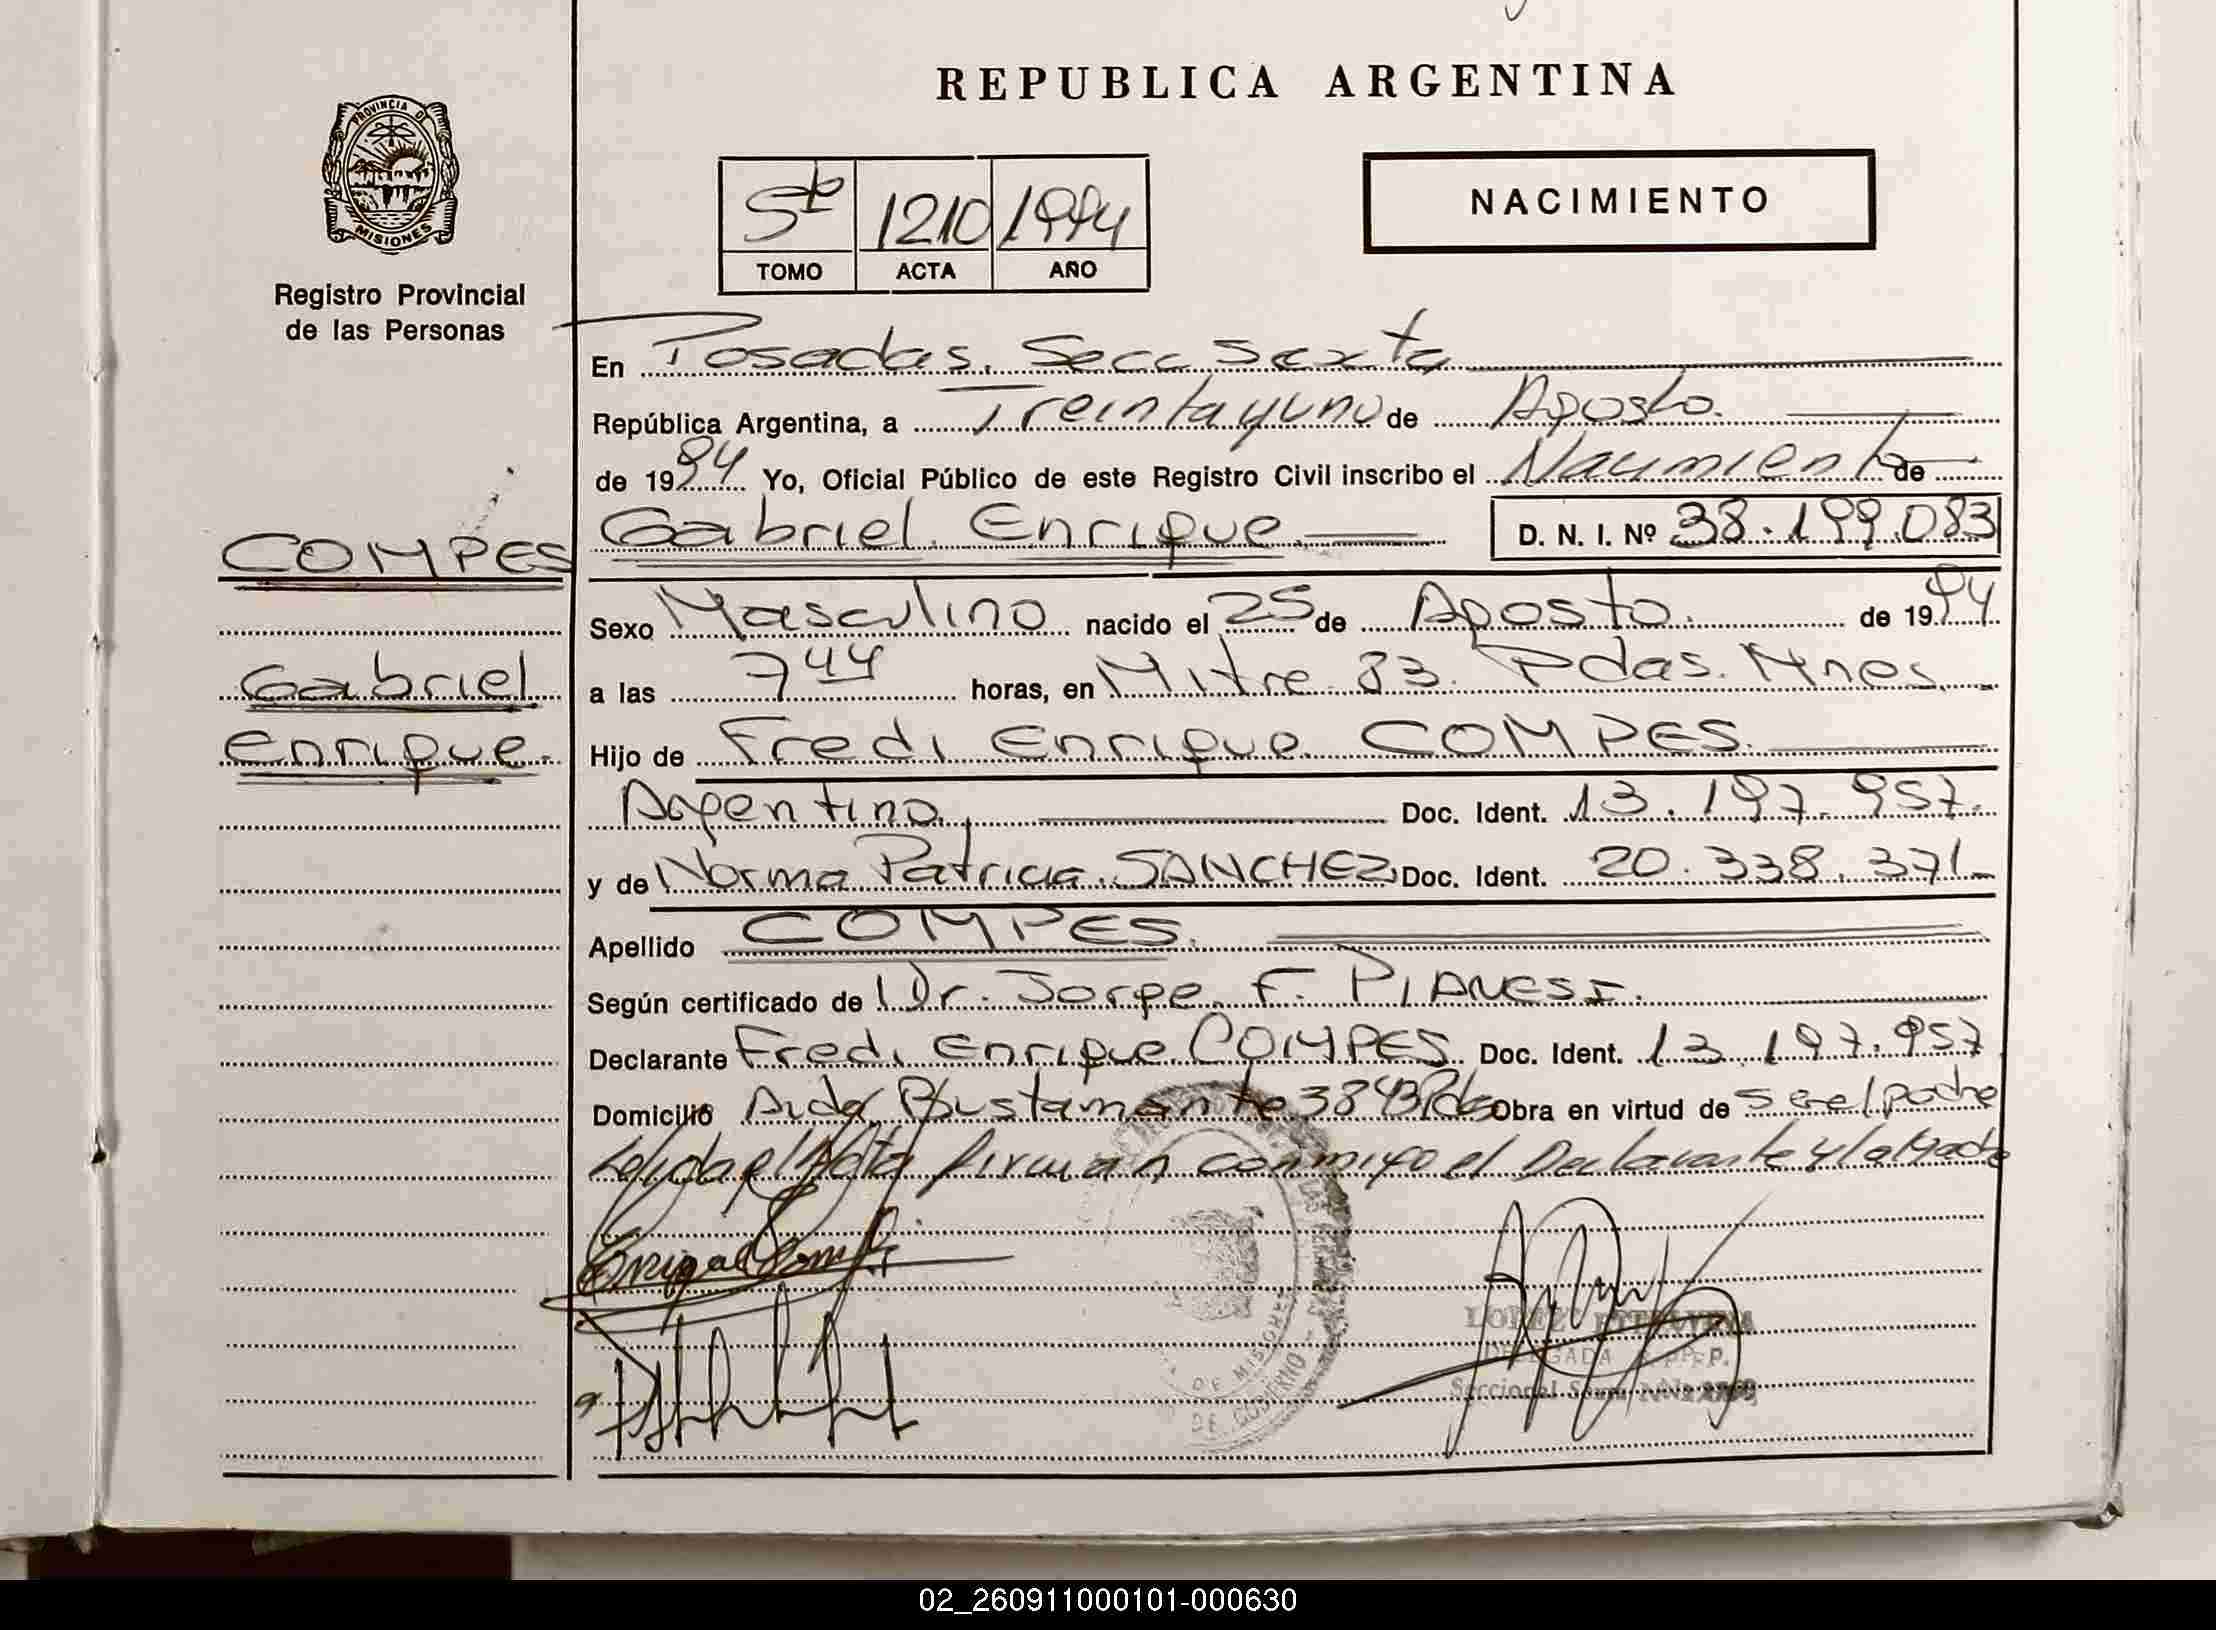 REPUBLICA ARGENTINA
PROVINCIA DE
MISIONES
Registro Provincial
de las Personas
5to 1210 1994
TOMO ACTA AÑO
NACIMIENTO
En Posadas. Secc Sexta
República Argentina, a Treinta y uno de Agosto.
de 1994 Yo, Oficial Público de este Registro Civil inscribo el Nacimiento de
COMPES
Gabriel Enrique. D. N. I. Nº 38.199.083
Sexo Masculino nacido el 25 de Agosto. de 1994
Gabriel
a las 7 44 horas, en Mitre 83. Pdas. Mnes.
Enrique.
Hijo de Fredi Enrique COMPES.
Argentino, Doc. Ident. 13.197.957.
y de Norma Patricia SANCHEZ Doc. Ident. 20.338.371
Apellido COMPES.
Según certificado de Dr. Jorge F. PIANESI.
Declarante Fredi Enrique COMPES Doc. Ident. 13.197.957
Domicilio Aida Bustamante 3843 Pdas Obra en virtud de ser el padre
Leida el Acta firman conmigo el Declarante y la Madre
DE MISIONES
DE GOBIERNO
LOPEZ
DELEGADA R.P.P.
Seccional
02_260911000101-000630